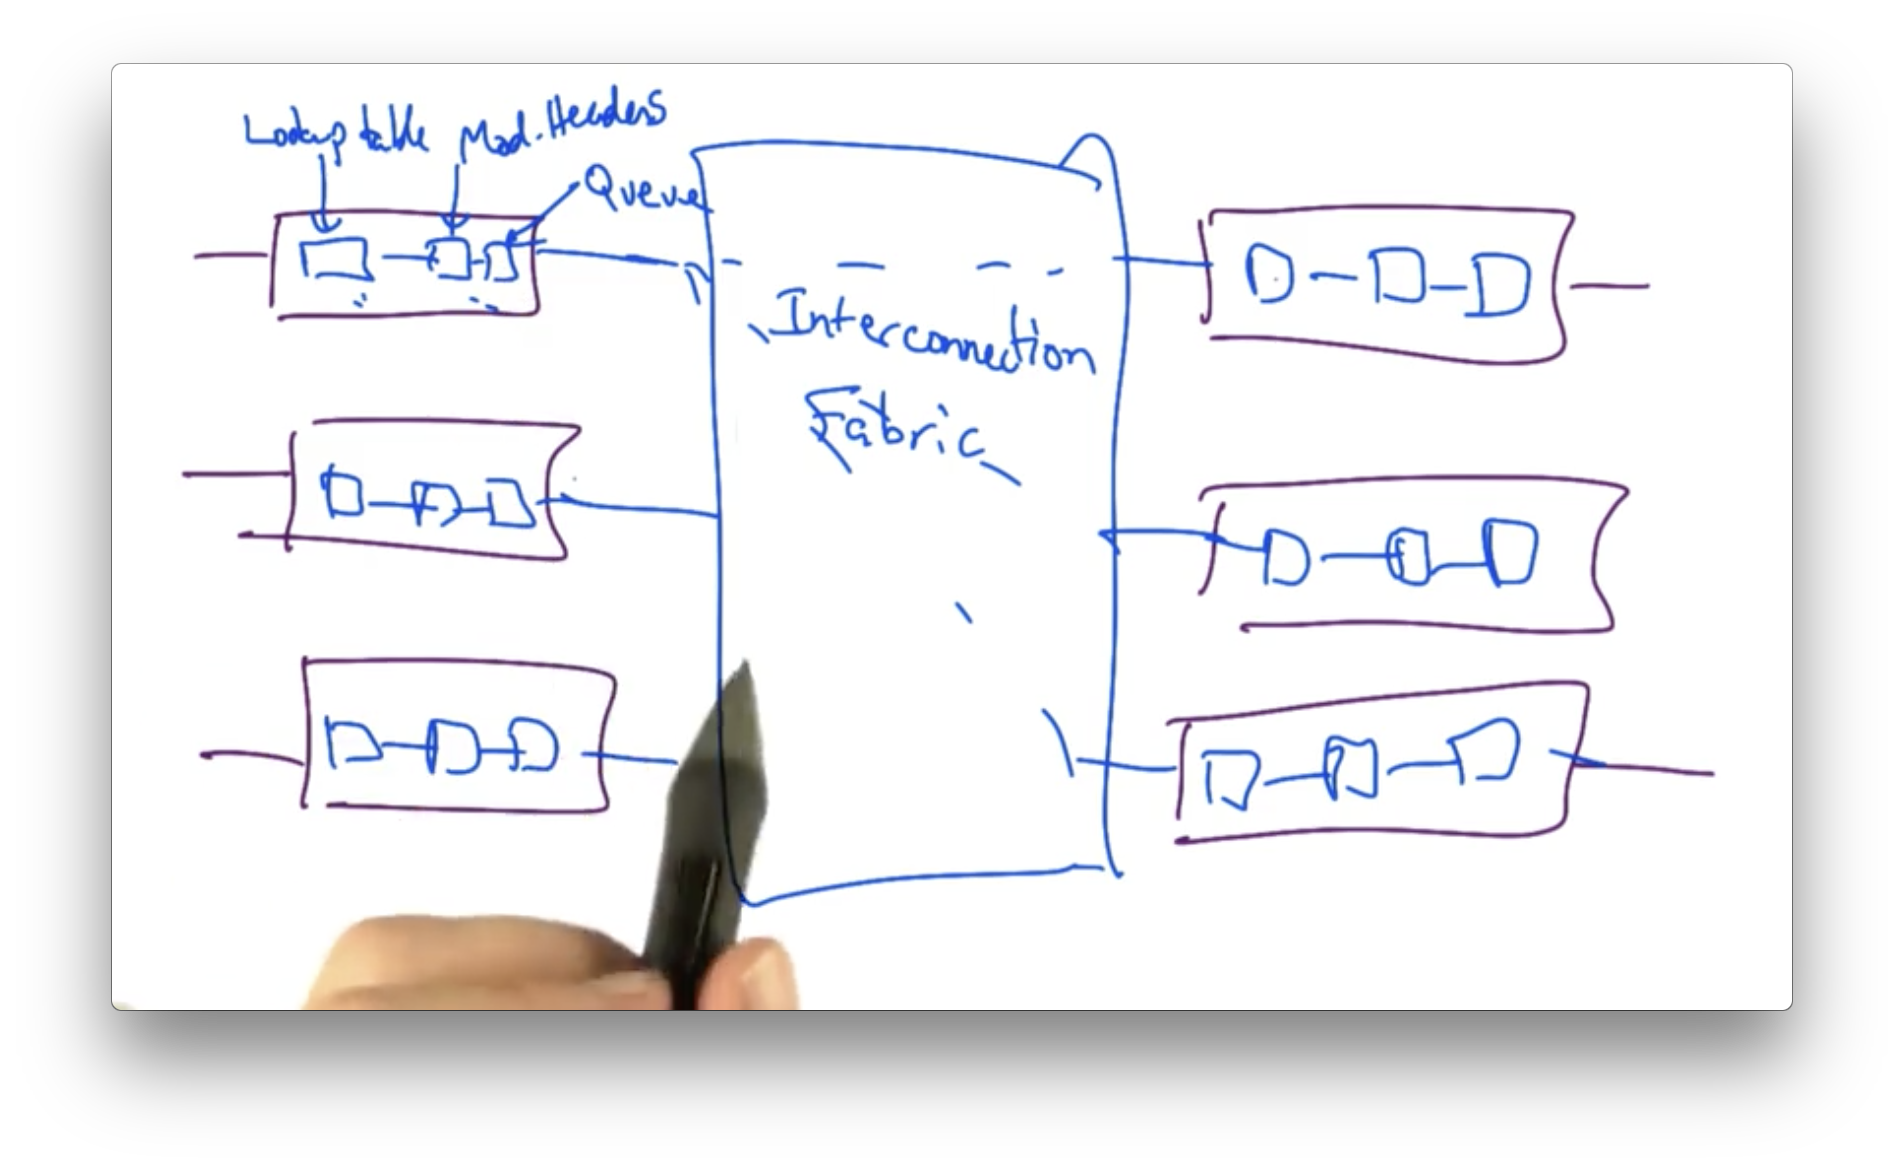 Lookup table Mod. Headers
Queue
Interconnection
Fabric